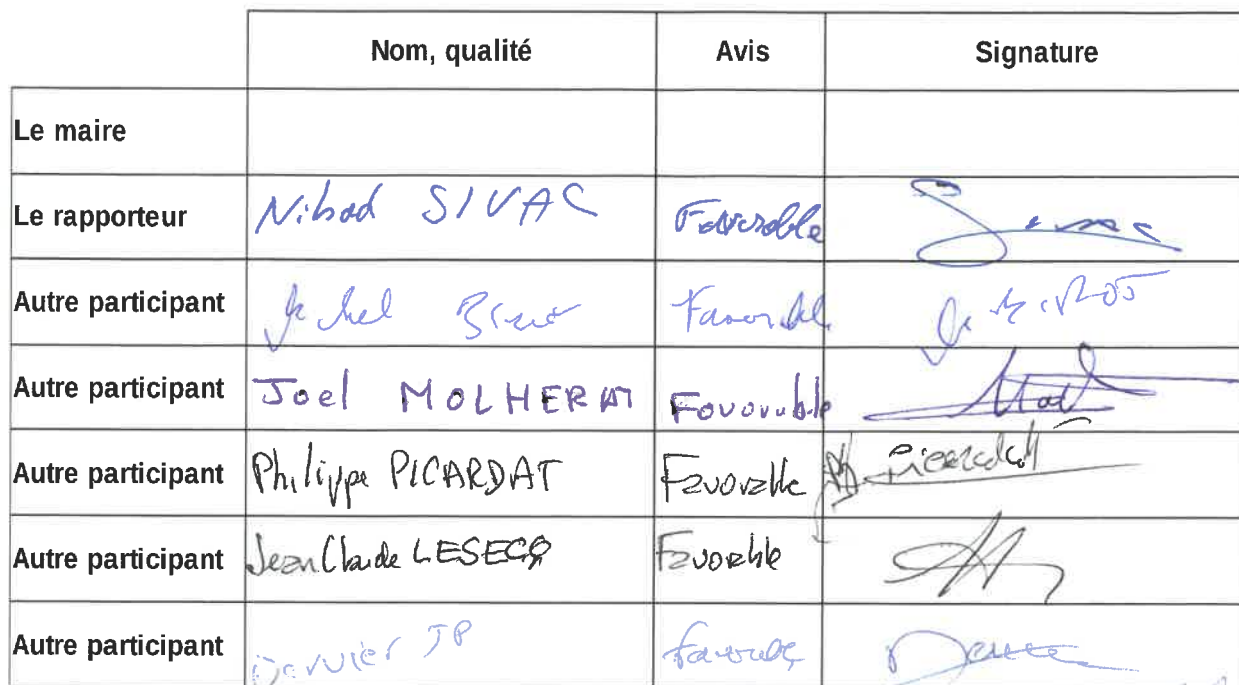 Nom, qualité Avis Signature
Le maire
Le rapporteur Nihad SIVAC Favorable
Autre participant Michel Favorable
Autre participant Joel MOLHERAT Favorable
Autre participant Philippe PICARDAT Favorable Ph Picardat
Autre participant Jean Claude LESECQ Favorable
Autre participant Darvier JP favorable